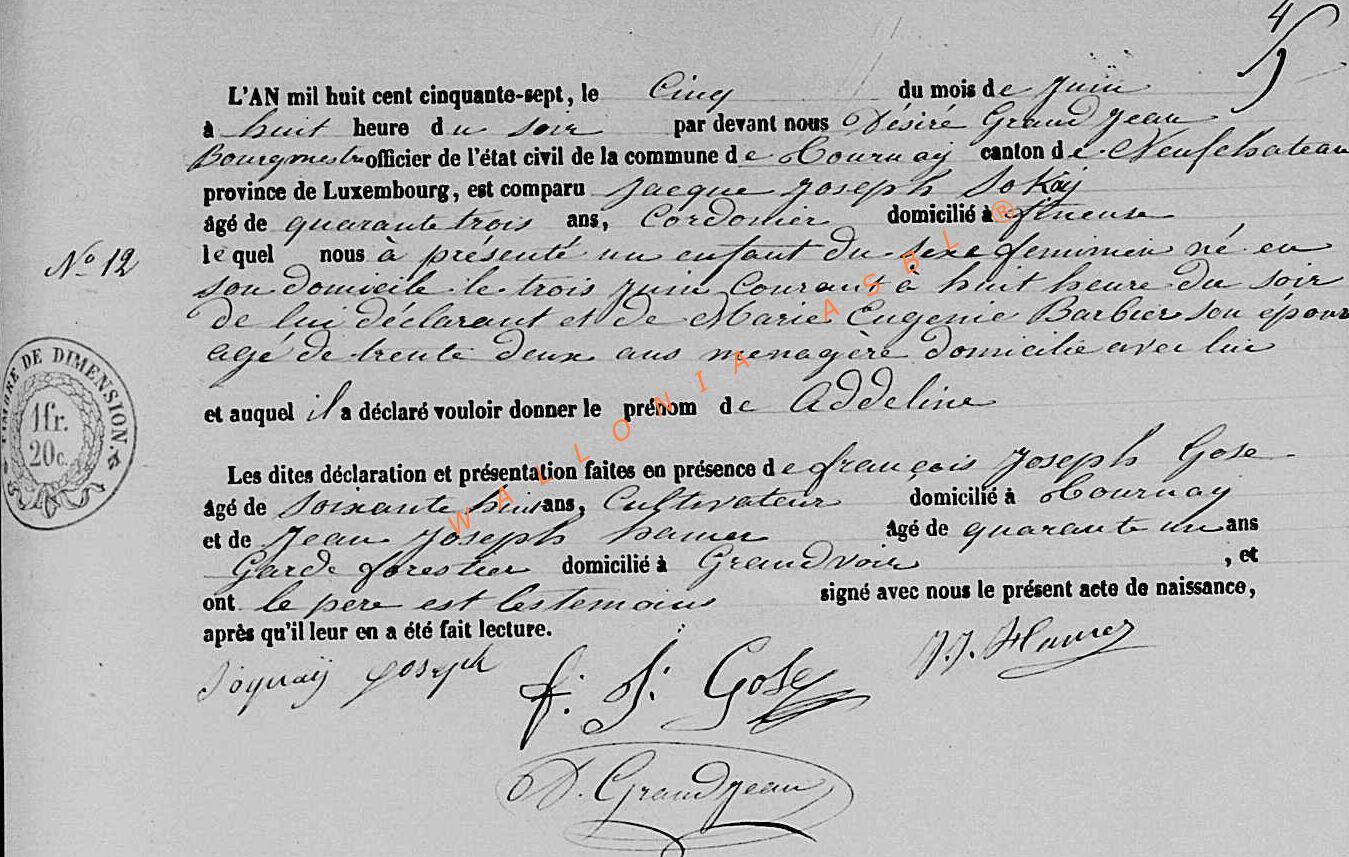 4
5
L'AN mil huit cent cinquante-sept, le Cinq du mois de Juin
à huit heure du soir par devant nous Désiré Grand Jean
Bourgmestre officier de l'état civil de la commune de Tournay canton de Neufchateau
province de Luxembourg, est comparu Jacque Joseph Sokay
âgé de quarante trois ans, Cordonier domicilié à fineuse
N° 12
le quel nous à présenté un enfant du sexe feminien né en
son domicile le trois Juin Courant à huit heure du soir
de lui déclarant et de Marie Eugenie Barbier son épouse
agé de trente deux ans menagère domicilié avec lui
et auquel il a déclaré vouloir donner le prénom de Addeline
TIMBRE DE DIMENSION.
1fr.
20c.
Les dites déclaration et présentation faites en présence de françois Joseph Gose
âgé de soixante huit ans, Cultivateur domicilié à Tournay
et de Jean Joseph hamer âgé de quarante un ans
Garde forestier domicilié à Grandvoir , et
ont le pere est les temoins signé avec nous le présent acte de naissance,
après qu'il leur en a été fait lecture.
Soquaÿ Joseph
f. J. Gose
J. J. Hamer
D. Grandjean
WALLONIA ASBL ®